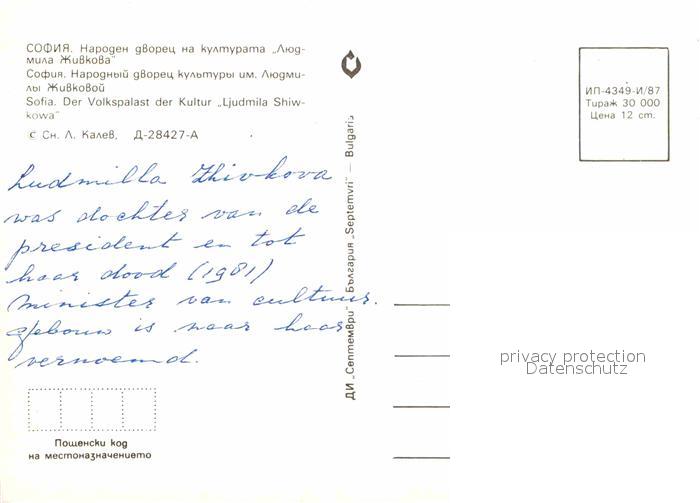 СОФИЯ. Народен дворец на културата „Люд-
мила Живкова"
София. Народный дворец культуры им. Людми-
лы Живковой
Sofia. Der Volkspalast der Kultur „Ljudmila Shiw-
kowa"
© Сн. Л. Калев, Д-28427-А
Ludmilla Zhivkova
was dochter van de
president en tot
haar dood (1981)
minister van cultuur.
Gebouw is naar haar
vernoemd.
Пощенски код
на местоназначението
ДИ „Септември" България „Septemvri" — Bulgaria
ИП-4349-И/87
Тираж 30 000
Цена 12 ст.
privacy protection
Datenschutz